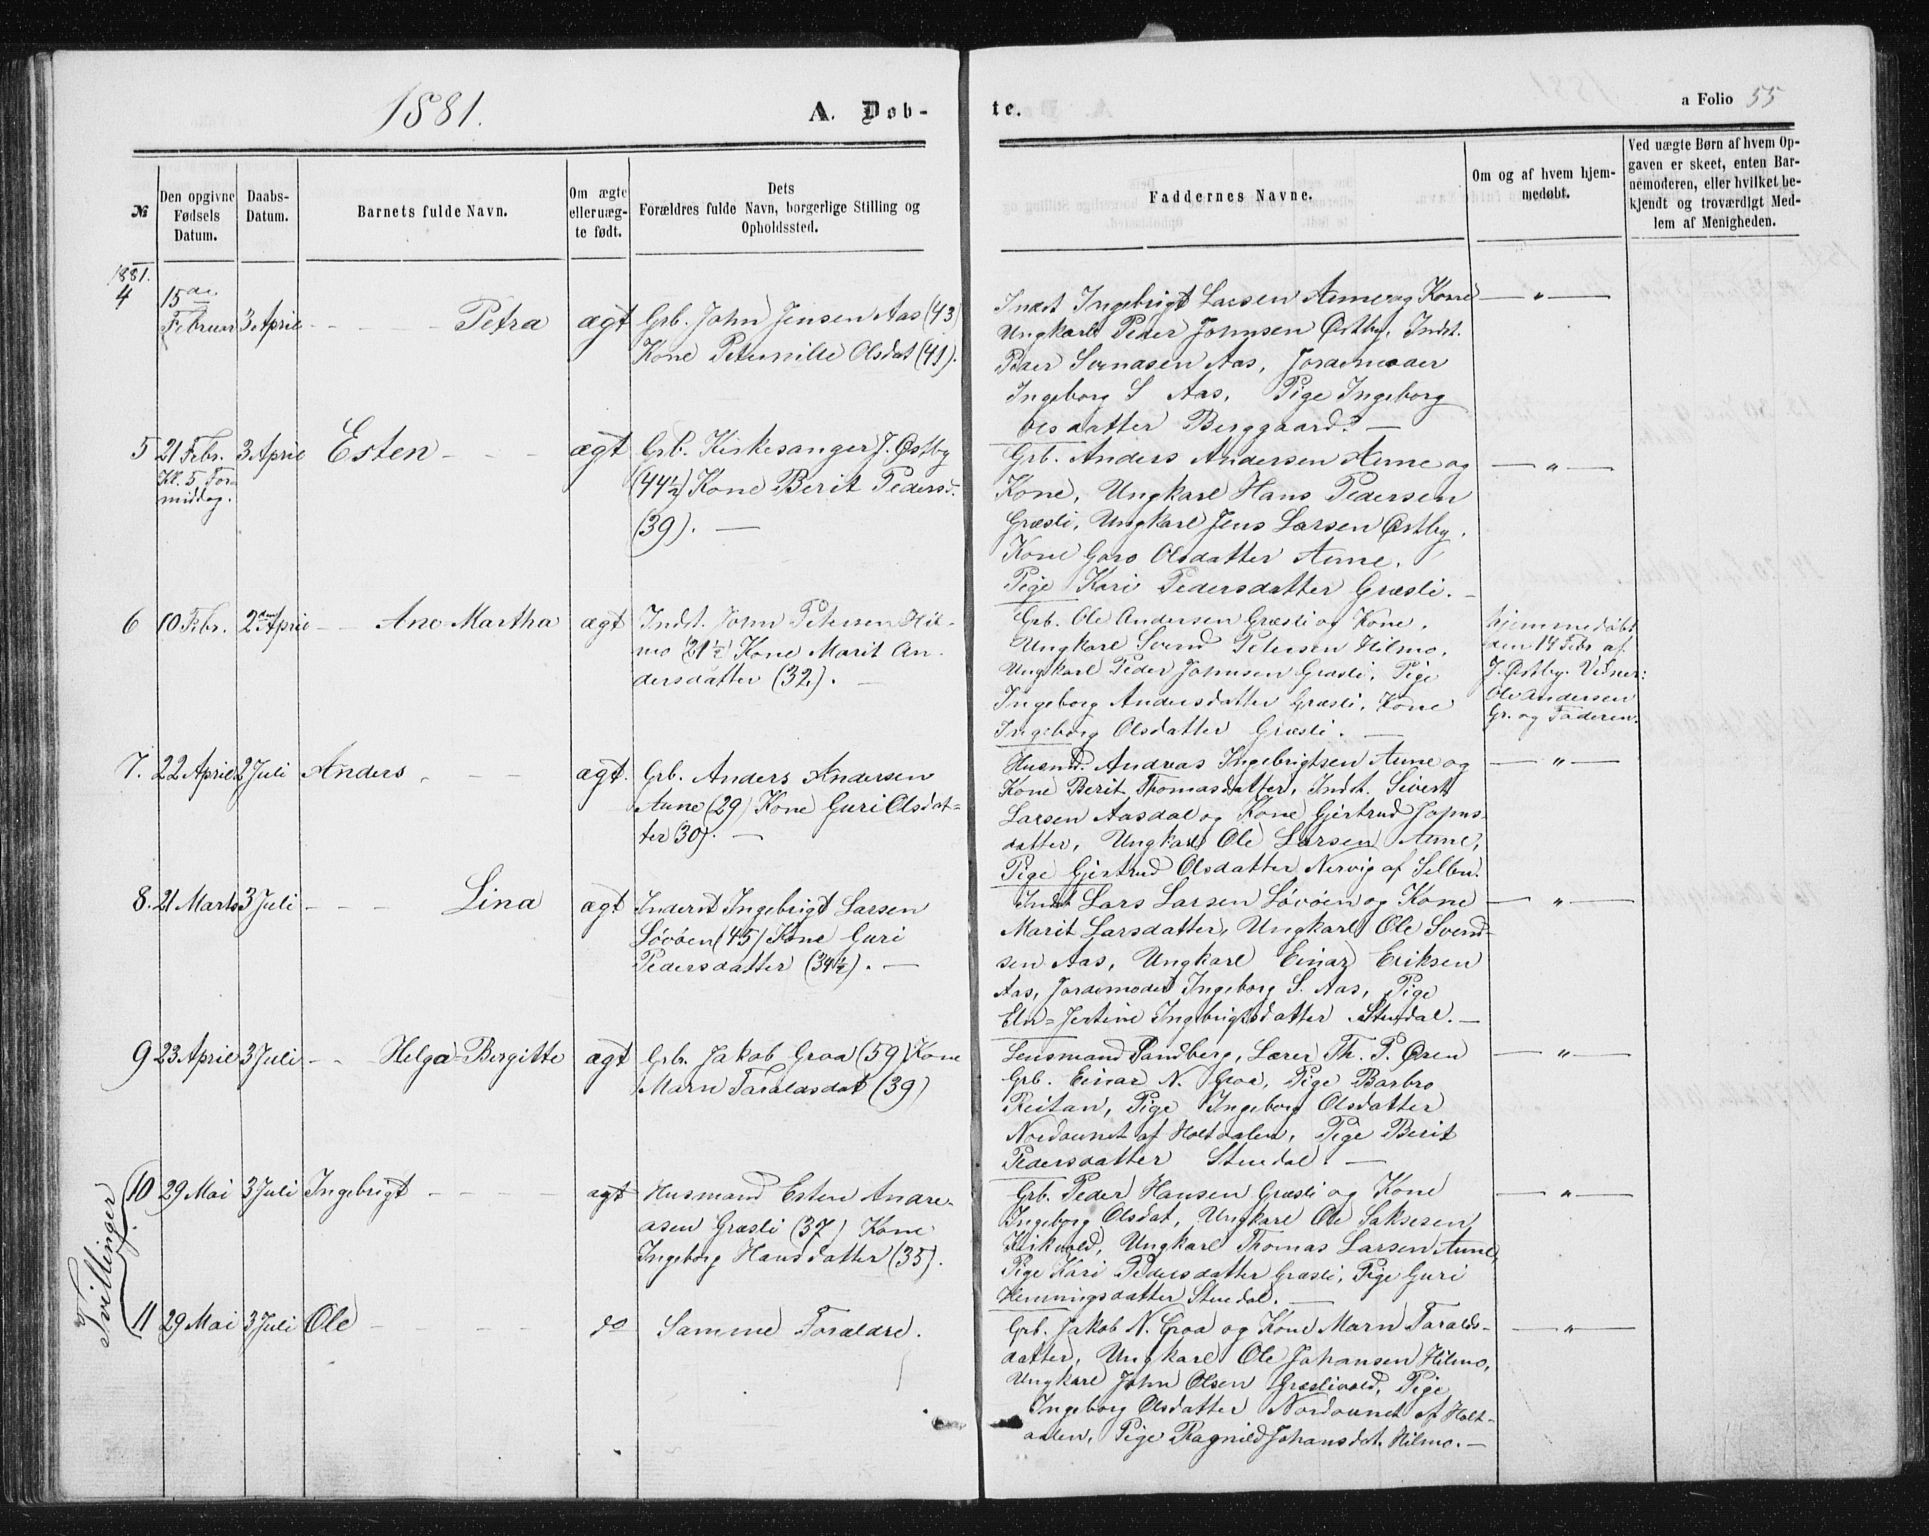 1881.
A. Døb-
te.
a Folio 55
№
Den opgivne Fødsels Datum.
Daabs-Datum.
Barnets fulde Navn.
Om ægte eller uæg-te født.
Dets Forældres fulde Navn, borgerlige Stilling og Opholdssted.
Faddernes Navne.
Om og af hvem hjem-medøbt.
Ved uægte Børn af hvem Op-gaven er skeet, enten Bar-nemoderen, eller hvilket be-kjendt og troværdigt Med-lem af Menigheden.
1881.
4
15de Februar
3 April
Petra
ægt
Grb. John Jensen Aas (43)
Kone Peternille Olsdat (41).
Indst Ingebrigt Larsen Aune og Kone
Ungkarl Peder Johnsen Østby, Indst.
Peder Svendsen Aas, Jordemoder
Ingeborg S Aas, Pige Ingeborg
Olsdatter Berggaard. —
— „ —
5
21 Febr. Kl. 5 For-middag.
3 April
Esten
ægt
Grb. Kirkesanger J. Østby
(44½) Kone Berit Pedersd.
(39). —
Grb. Anders Andersen Aune og
Kone, Ungkarl Hans Pedersen
Græsli, Ungkarl Jens Larsen Østby.
Kone Goro Olsdatter Aune.
Pige Kari Pedersdatter Græsli. —
— „ —
6
10 Febr.
2den April
Ane-Martha
ægt
Indst. John Petersen Hil-
mo (21½) Kone Marit An-
dersdatter (32). —
Grb. Ole Andersen Græsli og Kone.
Ungkarl Svend Petersen Hilmo.
Ungkarl Peder Johnsen Græsli, Pige
Ingeborg Andersdatter Græsli, Kone
Ingeborg Olsdatter Græsli. —
hjemmedøbt
den 14 Febr af
J. Østby. Vidner:
Ole Andersen
Gr. og Faderen.
7.
22 April
2 Juli
Anders
ægt.
Grb. Anders Andersen
Aune (29) Kone Guri Olsdat-
ter 30). —
Husmd. Andreas Ingebrigtsen Aune og
Kone Berit Thomasdatter, Indst. Sivert
Larsen Aasdal og Kone Gjertrud Johns-
datter, Ungkarl Ole Larsen Aune,
Pige Gjertrud Olsdatter Nervig af Selbu.
— „ —
8.
21 Marts
3 Juli
Lina
ægt
Inderst Ingebrigt Larsen
Løvøen (45) Kone Guri
Pedersdatter (34½). —
Indst Lars Larsen Løvøen og Kone
Marit Larsdatter, Ungkarl Ole Svend-
sen Aas, Ungkarl Einar Eriksen
Aas, Jordemoder Ingeborg S. Aas, Pige
Elen-Jertine Ingebrigtsdatter Stuedal. —
— „ —
9
23 April
3 Juli
Helga-Birgitte
ægt
Grb. Jakob Groa (59) Kone
Marn Taraldsdat (39)
Lensmand Sandberg, Lærer Th. P. Øren
Grb. Einar N. Groa, Pige Barbro
Reitan, Pige Ingeborg Olsdatter
Nordaunet af Holtdalen, Pige Berit
Pedersdatter Stuedal. —
— „ —
Tvillinger
10
29 Mai
3 Juli
Ingebrigt
ægt
Husmand Esten Andre-
asen Græsli (37) Kone
Ingeborg Hansdatter (35).
Grb. Peder Hansen Græsli og Kone
Ingeborg Olsdat, Ungkarl Ole Saksesen
Kirkvold, Ungkarl Thomas Larsen Aune,
Pige Kari Pedersdatter Græsli, Pige Guri
Henningsdatter Stuedal. —
— „ —
11
29 Mai
3 Juli
Ole
do
Samme Forældre.
Grb. Jakob N. Groa og Kone Marn Taralds-
datter, Ungkarl Ole Johansen Hilmo,
Ungkarl John Olsen Græslivold, Pige
Ingeborg Olsdatter Nordaunet af Holt-
aalen, Pige Ragnild Johansdat. Hilmo. —
— „ —